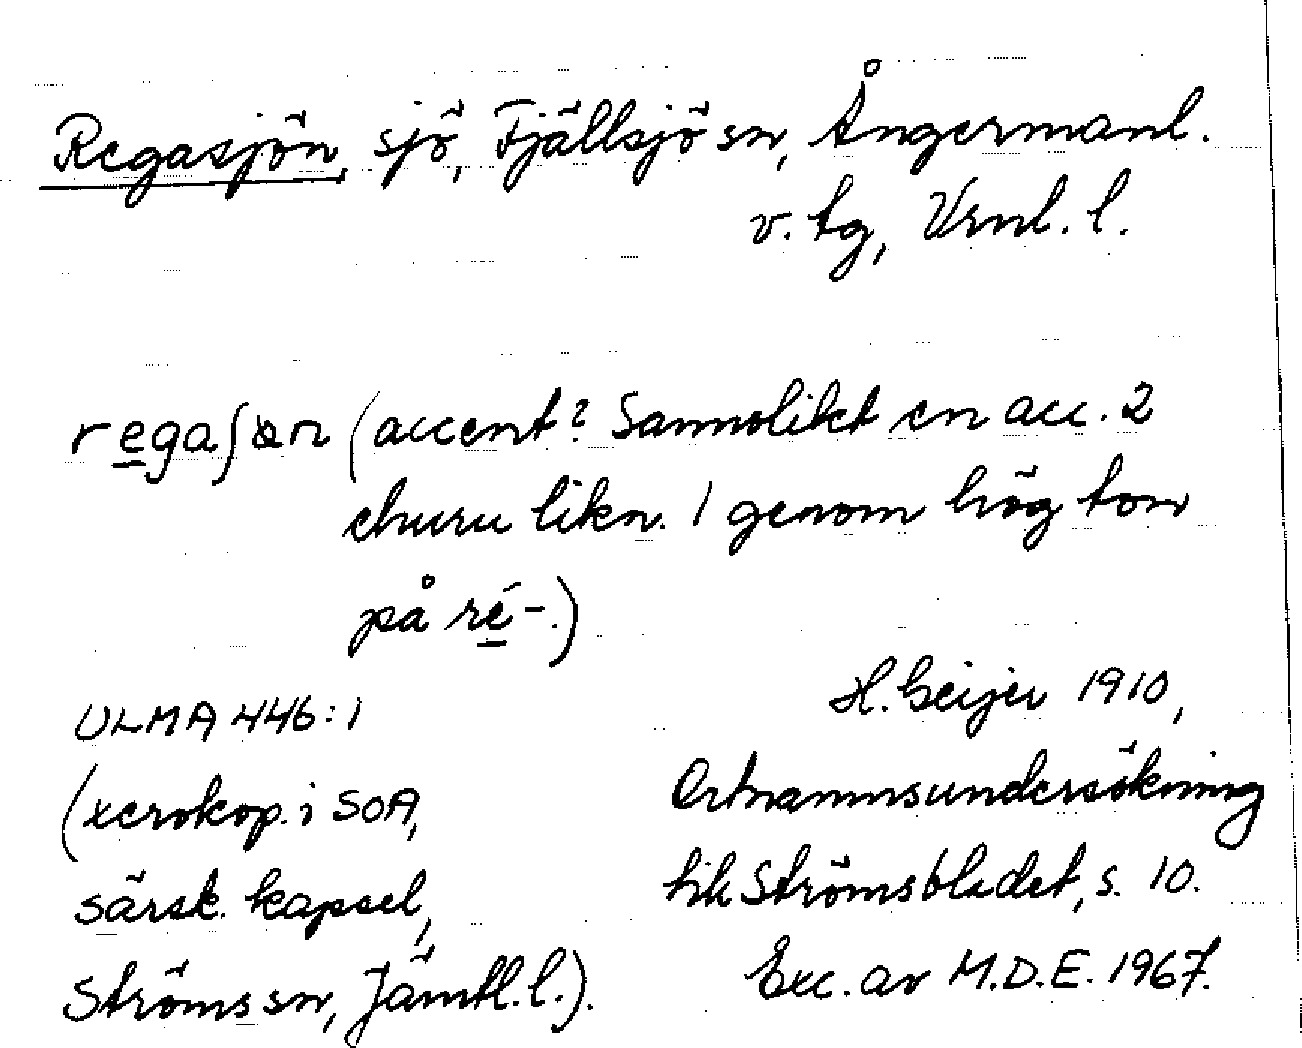 Regasjön, sjö, Fjällsjö sn, Ångermanl.
v. tg, Vrnl. l.
regaʃɶn (accent? Sannolikt en acc. 2
ehuru likn. 1 genom hög ton
på ré-.)
ULMA 446:1
(xerokop. i SOA,
särsk. kapsel,
Ströms sn, Jämtl. l.).
H. Geijer 1910,
Ortnamnsundersökning
till Strömsbladet, s. 10.
Exc. av M.D.E. 1967.